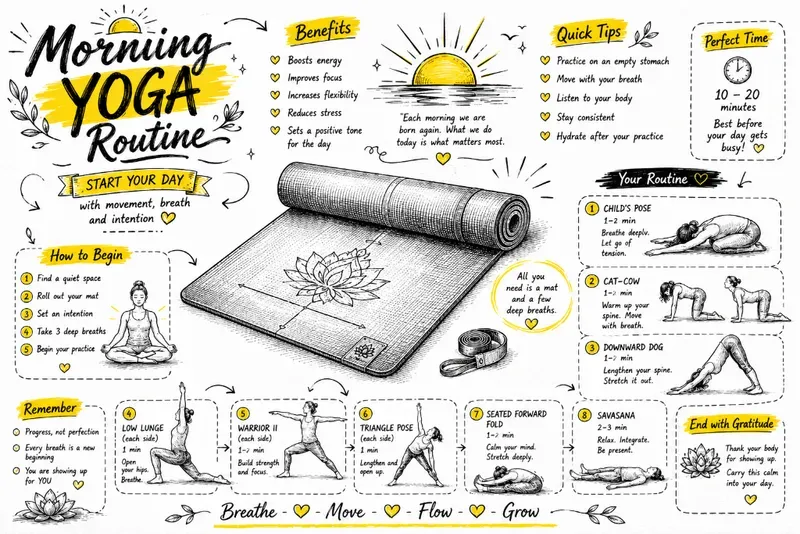 Morning
YOGA
Routine
START YOUR DAY
with movement, breath
and intention
Benefits
Boosts energy
Improves focus
Increases flexibility
Reduces stress
Sets a positive tone
for the day
"Each morning we are
born again. What we do
today is what matters most.
Quick Tips
Practice on an empty stomach
Move with your breath
Listen to your body
Stay consistent
Hydrate after your practice
Perfect Time
10 – 20
minutes
Best before
your day gets
busy!
How to Begin
1 Find a quiet space
2 Roll out your mat
3 Set an intention
4 Take 3 deep breaths
5 Begin your practice
All you
need is a mat
and a few
deep breaths.
Your Routine
1 CHILD'S POSE
1–2 min
Breathe deeply.
Let go of
tension.
2 CAT-COW
min
Warm up your
spine. Move
with breath.
3 DOWNWARD DOG
min
Lengthen your spine.
Stretch it out.
4
LOW LUNGE
(each side)
1 min
Open
your hips.
Breathe.
5
WARRIOR II
(each side)
min
Build strength
and focus.
6
TRIANGLE POSE
(each side)
1 min
Lengthen and
open up.
7
SEATED FORWARD
FOLD
min
Calm your mind.
Stretch deeply.
8
SAVASANA
2–3 min
Relax. Integrate.
Be present.
Remember
Progress, not perfection
Every breath is a new
beginning
You are showing up
for YOU
End with Gratitude
Thank your body
for showing up.
Carry this calm
into your day.
Breathe - Move - Flow - Grow